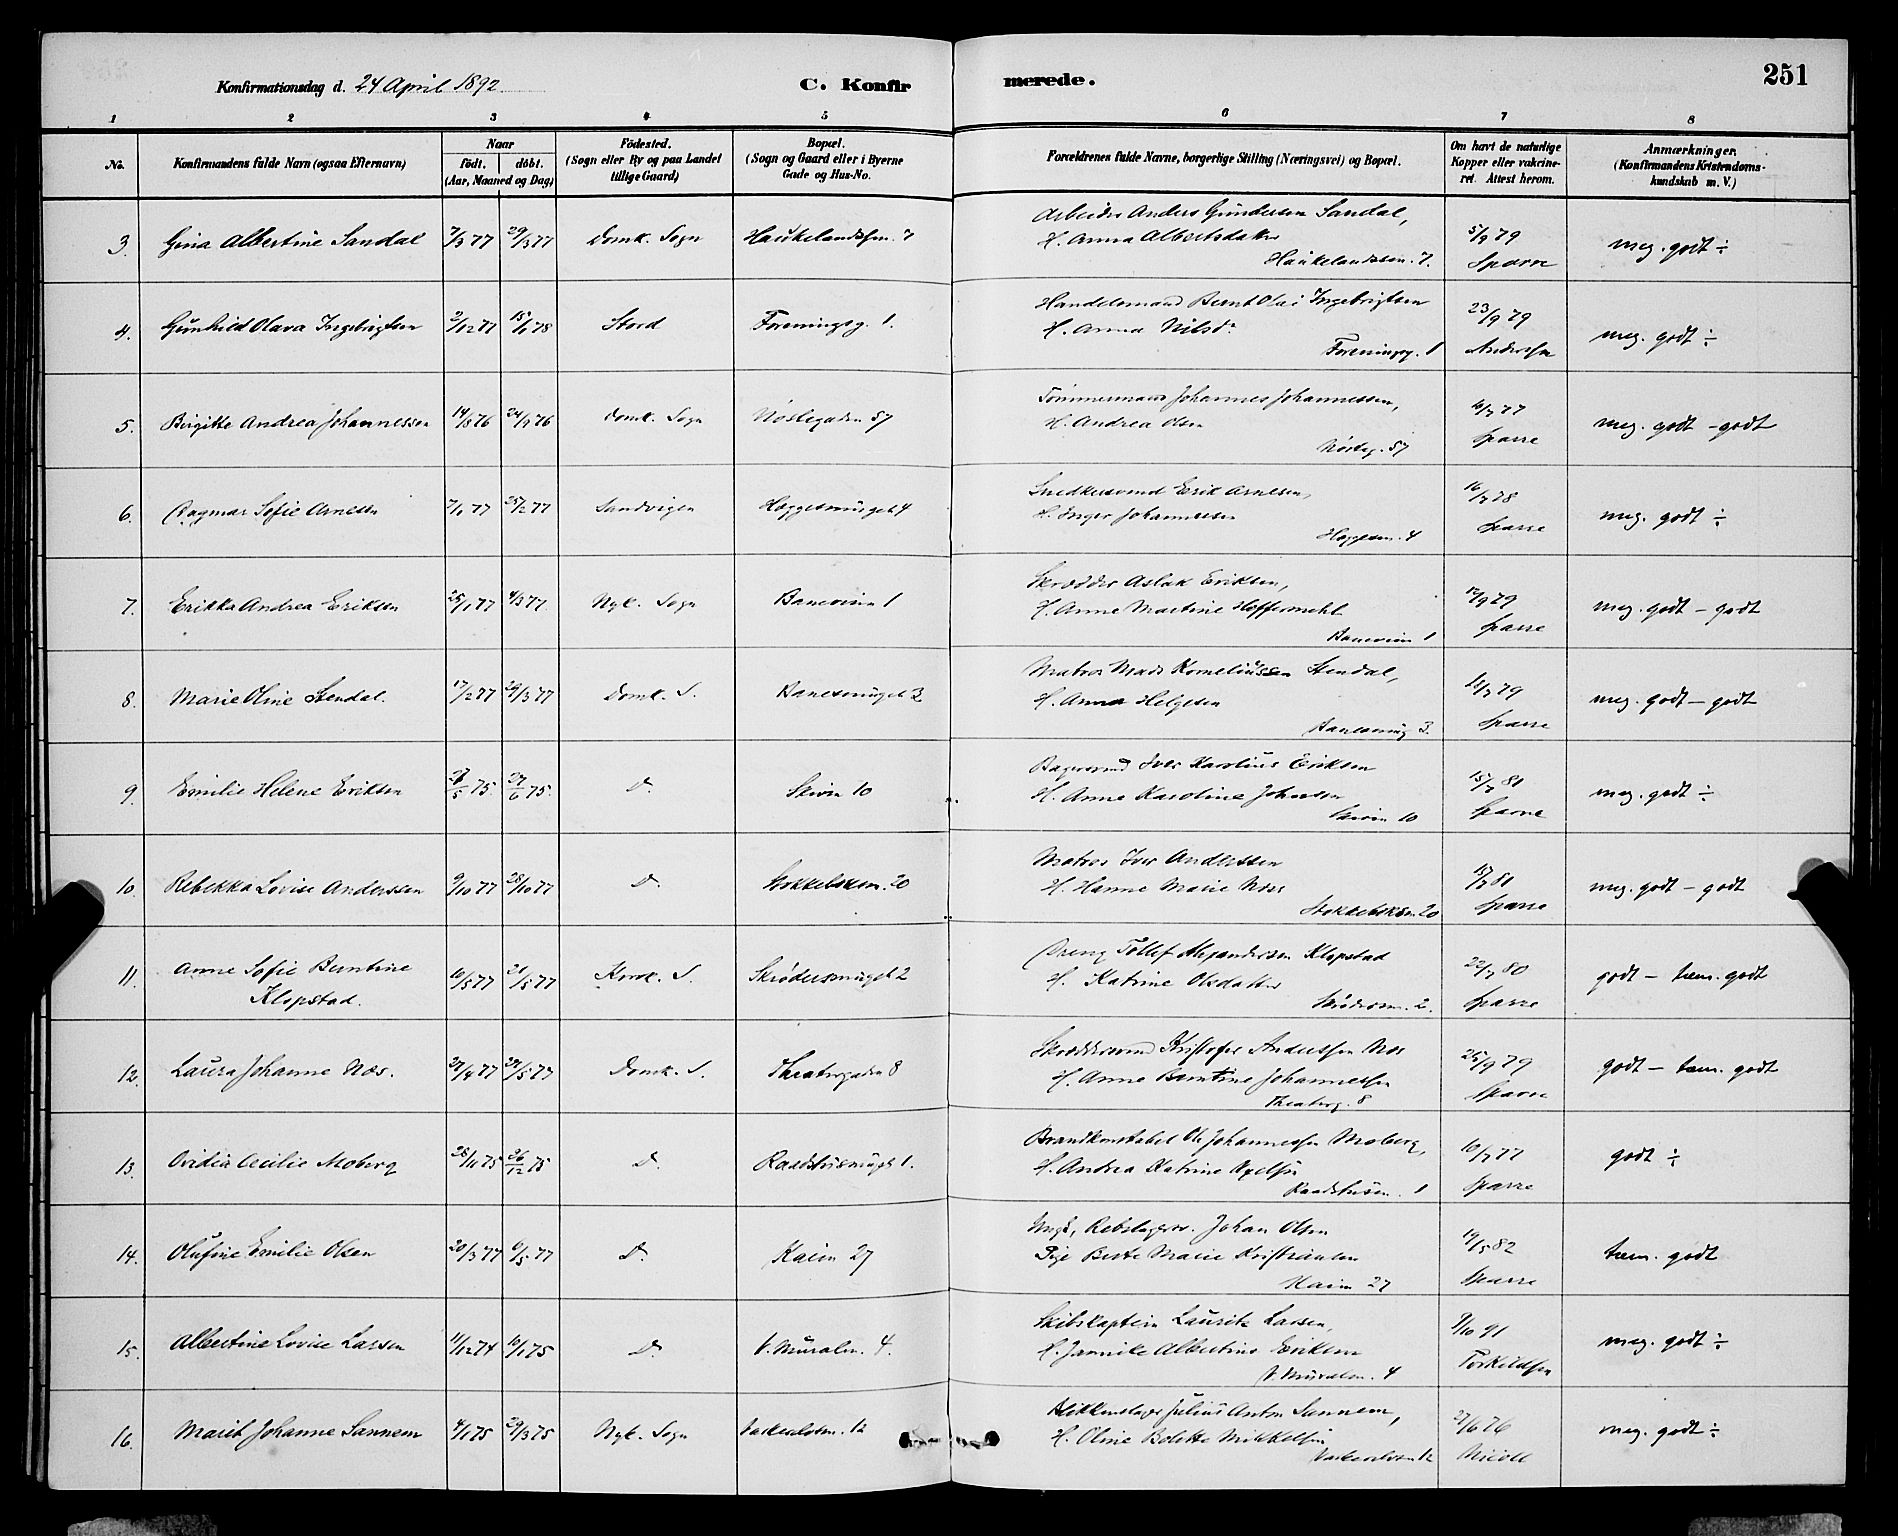 Konfirmationsdag d. 24 April 1892 C. Konfirmerede. 251
1 2 3 4 5 6 7 8
No.
Konfirmandens fulde Navn (ogsaa Efternavn)
Naar
födt. döbt.
(Aar, Maaned og Dag)
Födested.
(Sogn eller By og paa Landet
tillige Gaard)
Bopæl.
(Sogn og Gaard eller i Byerne
Gade og Hus-No.
Forældrenes fulde Navne, borgerlige Stilling (Næringsvei) og Bopæl.
Om havt de naturlige
Kopper eller vakcine-
ret. Attest herom.
Anmærkninger.
(Konfirmandens Kristendoms-
kundskab m. V.)
3. Gina Albertine Sandal 7/3 77 29/3 77 Domk. Sogn Haukelandssm. 7
Arbeider Anders Gundersen Sandal,
H. Anna Albertsdatter
Haukelandssm. 7.
5/9 79
Sparre
meg. godt ÷
4. Gunhild Olava Ingebrigtsen 2/12 77 15/1 78 Stord Foreningsg. 1.
Handelsmand Bernt Olai Ingebrigtsen
H. Anna Nilsd.
Foreningsg. 1
23/9 79
Andersen
meg. godt ÷
5. Birgitte Andrea Johannessen 14/8 76 24/9 76 Domk. Sogn Nöstegaden 57
Tömmermand Johannes Johannessen,
H. Andrea Olsen
Nösteg. 57
10/7 77
Sparre
meg. godt - godt
6. Dagmar Sofie Arnesen 7/1 77 25/2 77 Sandvigen Heggesmuget 4
Snedkersvend Erik Arnesen,
H. Inger Johannesen
Heggesm. 4
16/7 78
Sparre
meg. godt ÷
7. Erikka Andrea Eriksen 25/1 77 4/3 77 Nyk. Sogn Baneveien 1
Skrædder Aslak Eriksen,
H. Anne Martine Hoffermehl
Baneveien 1
12/9 79
Sparre
meg. godt - godt
8. Marie Oline Stendal. 17/2 77 29/3 77 Domk. S. Banesmuget 3
Matros Mads Korneliussen Stendal,
H. Anna Helgesen
Banesmug 3.
18/7 79
Sparre
meg. godt - godt
9. Emilie Helene Eriksen 27/5 75. 27/6 75. D. Skiven 10
Bagersvend Iver Karolius Eriksen
H. Anne Karoline Johnsen
Skiven 10
15/7 81
Sparre
meg. godt ÷
10. Rebekka Lovise Anderssen 9/10 77 28/10 77 D. Stokkelsksm. 20
Matros Iver Anderssen
H. Hanne Marie Moss
20
81
Sparre
meg. godt - godt
11. Anne Sofie Berntine
Klopstad.
10/5 77 21/5 77 Korsk. S. Skrödersmuget 2
Dreng Tollef Alexandersen Klopstad
H. Katrine Olsdatter
Skrödersm. 2.
22/7 80
Sparre
godt - tem. godt
12. Laura Johanne Næs. 27/4 77 29/5 77 Domk. S. Theatergaden 8
Skræddersvend Kristofer Anderssen Næs
H. Anne Berntine Johannessen
Theaterg. 8
25/9 79
Sparre
godt - tem. godt
13. Ovidia Cecilie Moberg 28/11 75 26/12 75 D. Raadstusmuget 1.
Brandkonstabel Ole Johannessen Moberg,
H. Andrea Katrine Axelsen
Raadstusm. 1
10/7 77
Sparre
godt ÷
14. Olufine Emilie Olsen 20/3 77 6/5 77 D. Kaien 27
Ungk. Rebslagersv. Johan Olsen
Pige Berte Marie Kristiansen
Kaien 27
19/5 82
Sparre
tem. godt
15. Albertine Lovise Larsen 11/12 74 10/1 75 D. V. Muralm. 4.
Skibskaptein Lauritz Larsen,
H. Jannike Albertine Eriksen
V. Muralm. 4
9/10 91
Torkildsen
meg. godt ÷
16. Marit Johanne Sannem 4/1 75 29/3 75 Nyk. Sogn Vaskerelvsm. 12
Blikkenslager Julius Anton Sannem,
H. Oline Bolette Mikkelsen
Vaskerelvsm 12
27/6 76
Nicoll
meg. godt ÷